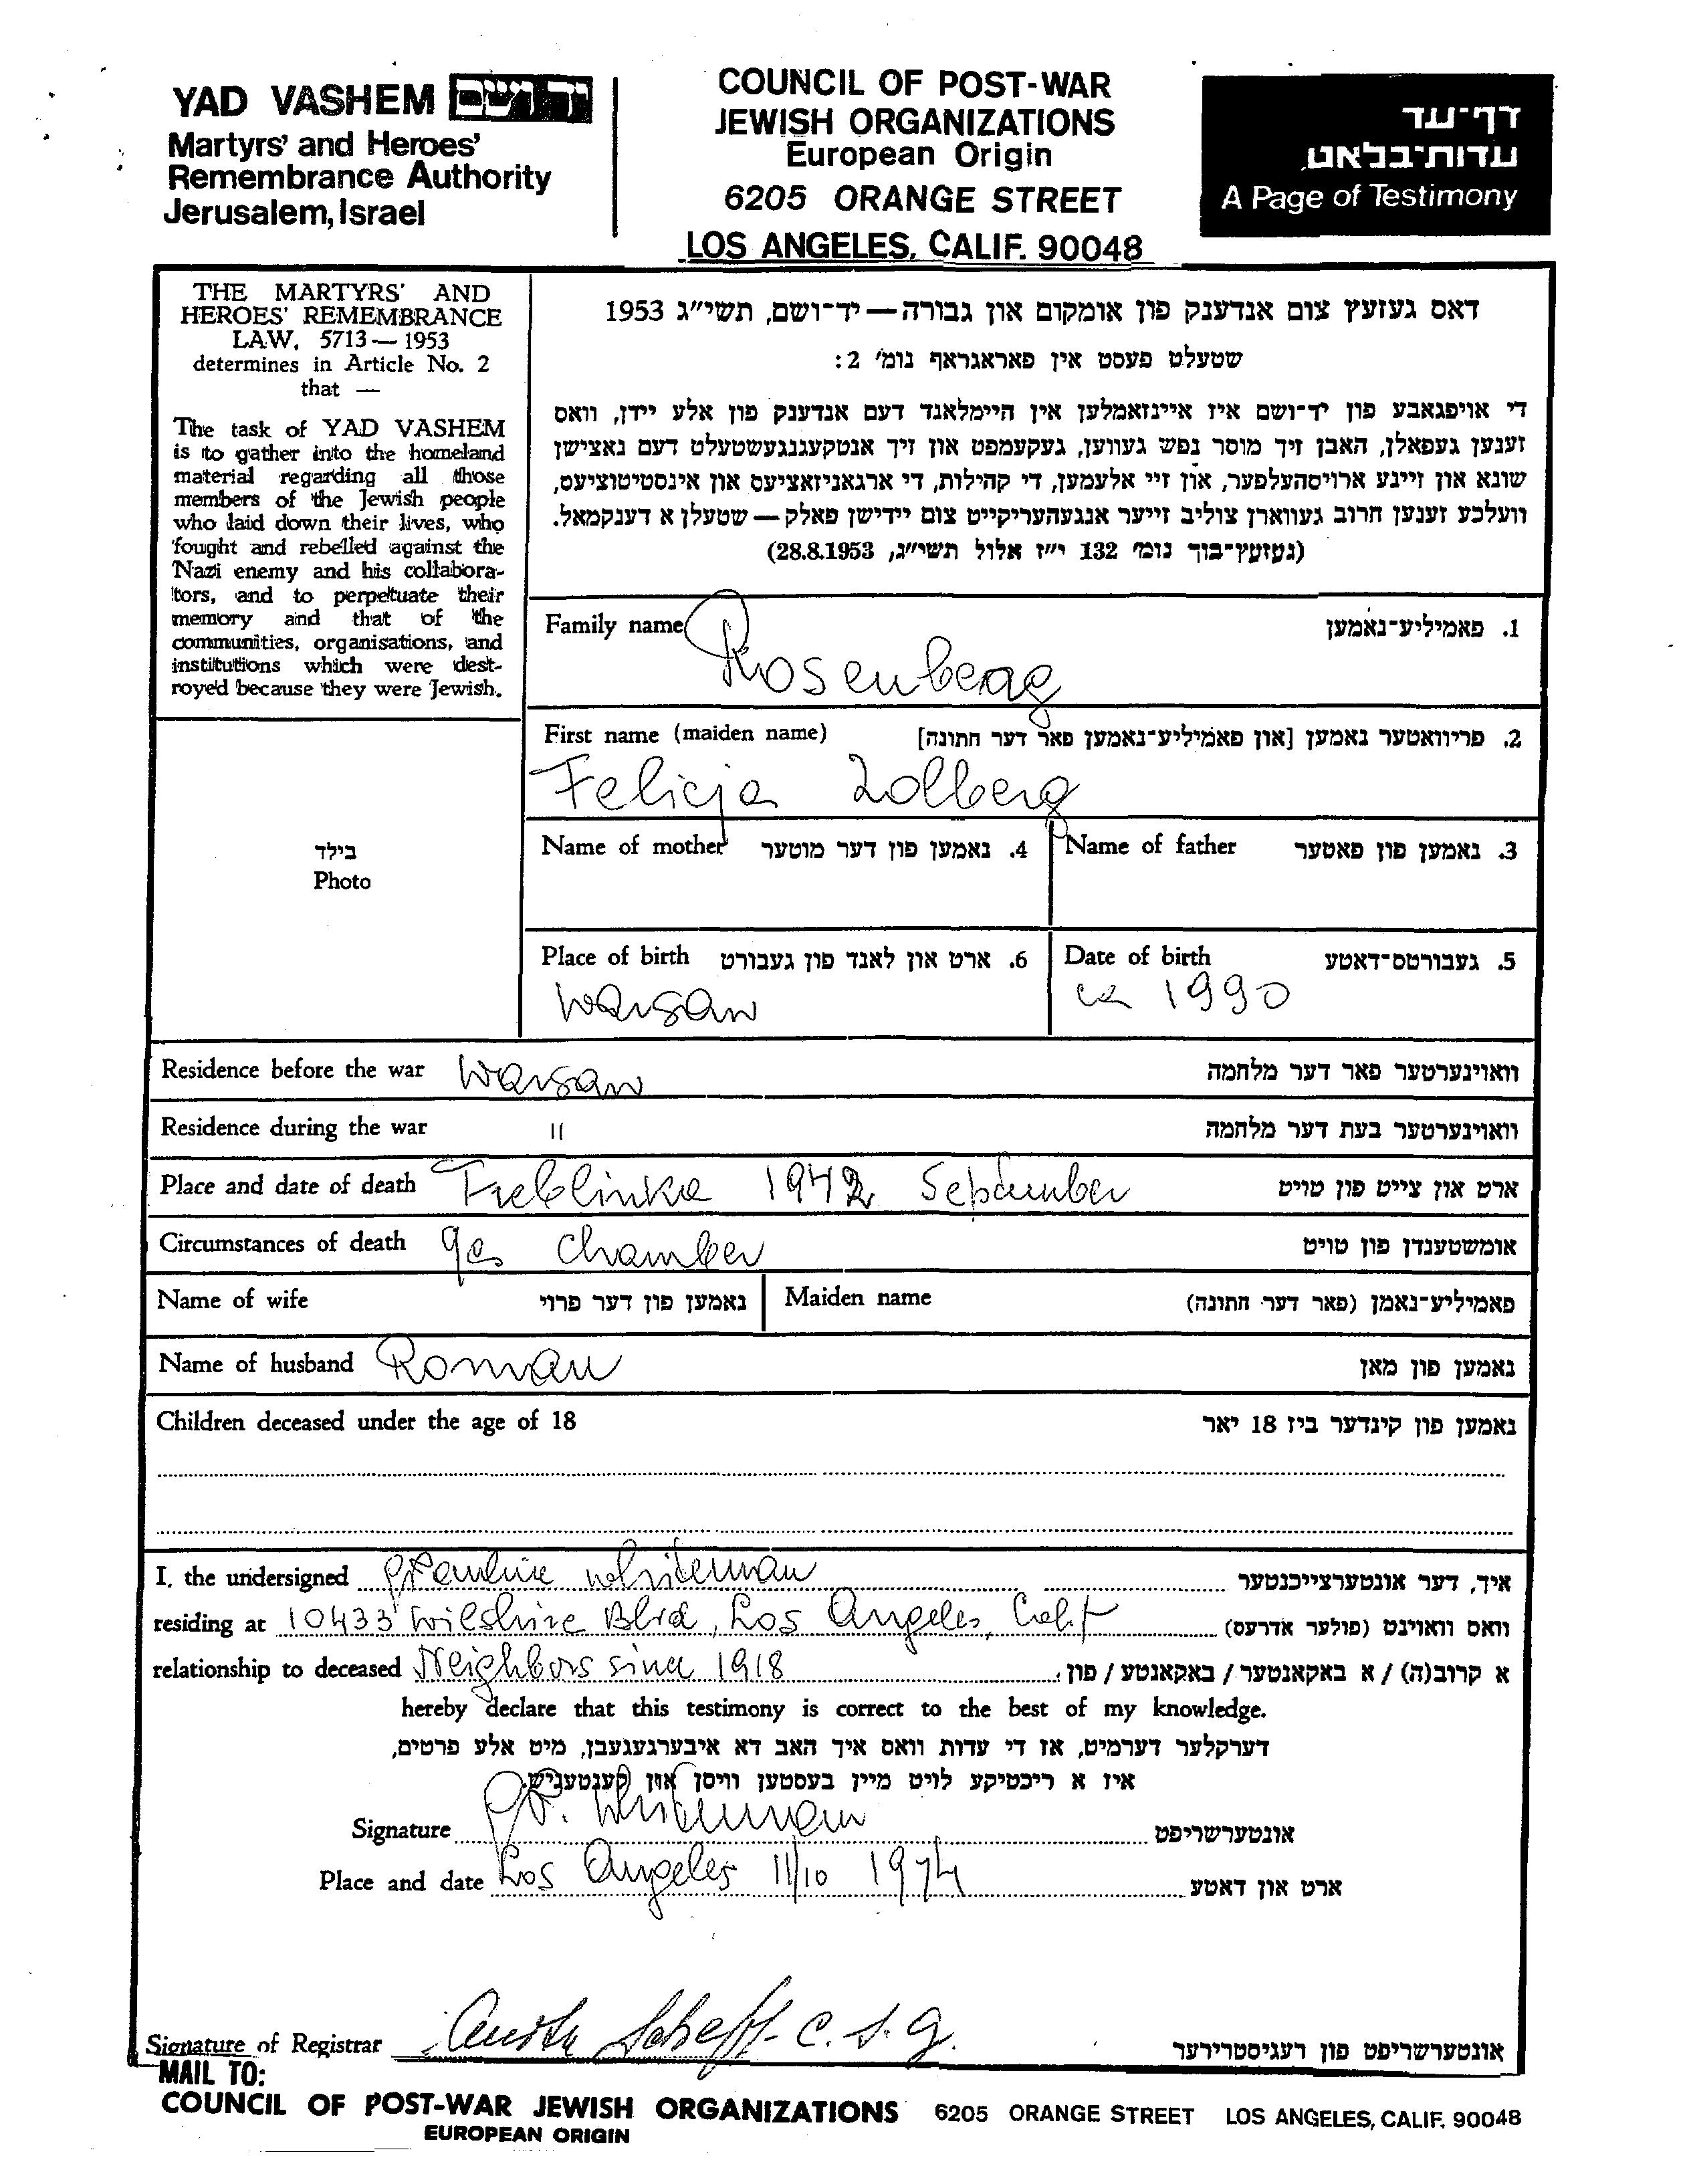 YAD VASHEM יד ושם
Martyrs' and Heroes'
Remembrance Authority
Jerusalem, Israel
COUNCIL OF POST-WAR
JEWISH ORGANIZATIONS
European Origin
6205 ORANGE STREET
LOS ANGELES, CALIF. 90048
דף־עד
עדות־בלאט
A Page of Testimony
THE MARTYRS' AND
HEROES' REMEMBRANCE
LAW, 5713 — 1953
determines in Article No. 2
that —
The task of YAD VASHEM
is to gather into the homeland
material regarding all those
members of the Jewish people
who laid down their lives, who
fought and rebelled against the
Nazi enemy and his collabora-
tors, and to perpetuate their
memory and that of the
communities, organisations, and
institutions which were dest-
royed because they were Jewish.
דאס געזעץ צום אנדענק פון אומקום און גבורה — יד־ושם, תשי״ג 1953
שטעלט פעסט אין פאראגראף נומ׳ 2:
די אויפגאבע פון יד־ושם איז איינזאמלען אין היימלאנד דעם אנדענק פון אלע יידן, וואס
זענען געפאלן, האבן זיך מוסר נפש געווען, געקעמפט און זיך אנטקעגנגעשטעלט דעם נאצישן
שונא און זיינע ארויסהעלפער, און זיי אלעמען, די קהילות, די ארגאניזאציעס און אינסטיטוציעס,
וועלכע זענען חרוב געווארן צוליב זייער אנגעהעריקייט צום יידישן פאלק — שטעלן א דענקמאל.
(געזעץ־בוך נומ׳ 132 י״ז אלול תשי״ג, 28.8.1953)
Family name Rosenberg 1. פאמיליע־נאמען
First name (maiden name) 2. פריוואטער נאמען [און פאמיליע־נאמען פאר דער חתונה]
Felicja Zolberg
Name of mother 4. נאמען פון דער מוטער Name of father 3. נאמען פון פאטער
בילד
Photo
Place of birth 6. ארט און לאנד פון געבורט Date of birth 5. געבורטס־דאטע
Warsaw ca 1990
Residence before the war Warsaw וואוינערטער פאר דער מלחמה
Residence during the war " וואוינערטער בעת דער מלחמה
Place and date of death Treblinka 1942 September ארט און צייט פון טויט
Circumstances of death gas chamber אומשטענדן פון טויט
Name of wife נאמען פון דער פרוי Maiden name פאמיליע־נאמן (פאר דער חתונה)
Name of husband Roman נאמען פון מאן
Children deceased under the age of 18 נאמען פון קינדער ביז 18 יאר
I, the undersigned Pauline Whiteman איך, דער אונטערצייכנטער
residing at 10433 Wilshire Blvd, Los Angeles, Calif וואס וואוינט (פולער אדרעס)
relationship to deceased Neighbors since 1918 א קרוב(ה) / א באקאנטער / באקאנטע / פון
hereby declare that this testimony is correct to the best of my knowledge.
דערקלער דערמיט, אז די עדות וואס איך האב דא איבערגעגעבן, מיט אלע פרטים,
איז א ריכטיקע לויט מיין בעסטען וויסן און קענטעניש.
Signature P. Whiteman אונטערשריפט
Place and date Los Angeles 11/10 1974 ארט און דאטע
Signature of Registrar C. S. G. אונטערשריפט פון רעגיסטרירער
MAIL TO:
COUNCIL OF POST-WAR JEWISH ORGANIZATIONS 6205 ORANGE STREET LOS ANGELES, CALIF. 90048
EUROPEAN ORIGIN